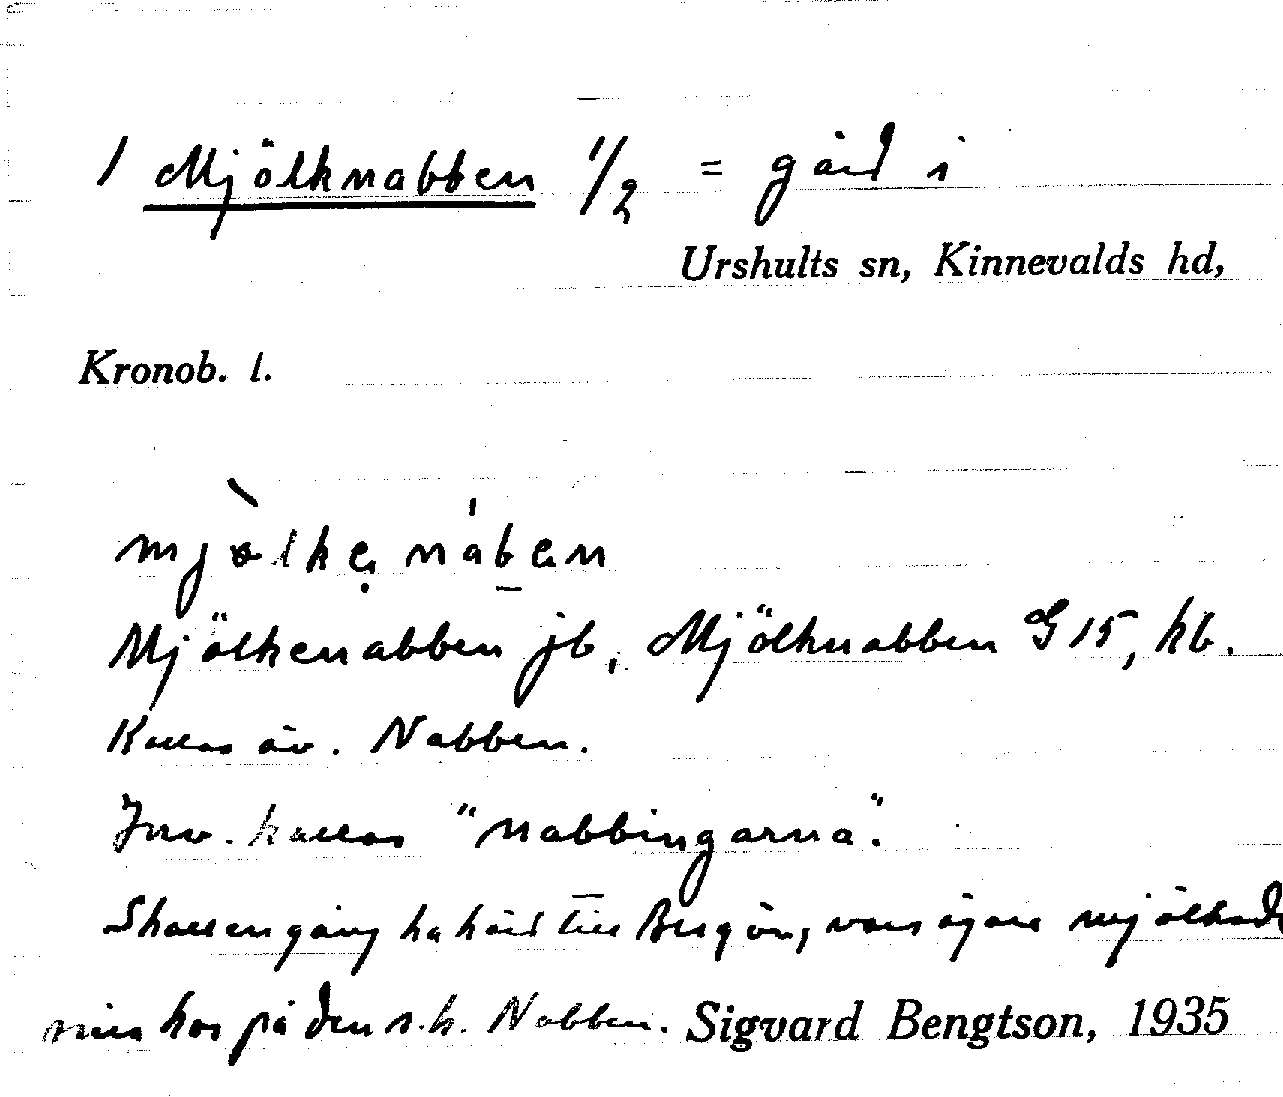 1 Mjölknabben 1/2 = gård i
Urshults sn, Kinnevalds hd,
Kronob. l.
mjòlkẹnáb̲en
Mjölkenabben jb, Mjölknabben G 15, kb.
Kallas äv. Nabben.
Inv. kallas "nabbingarna".
Skall en gång ha hört till Bergön, vars ägare mjölkade
sina kor på den s.k. Nabben. Sigvard Bengtson, 1935